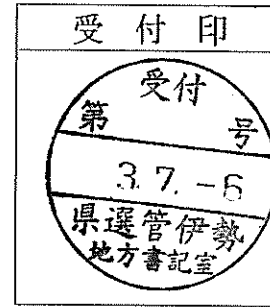 受付印
受付
第 号
3.7.-6
県選管伊勢
地方書記室